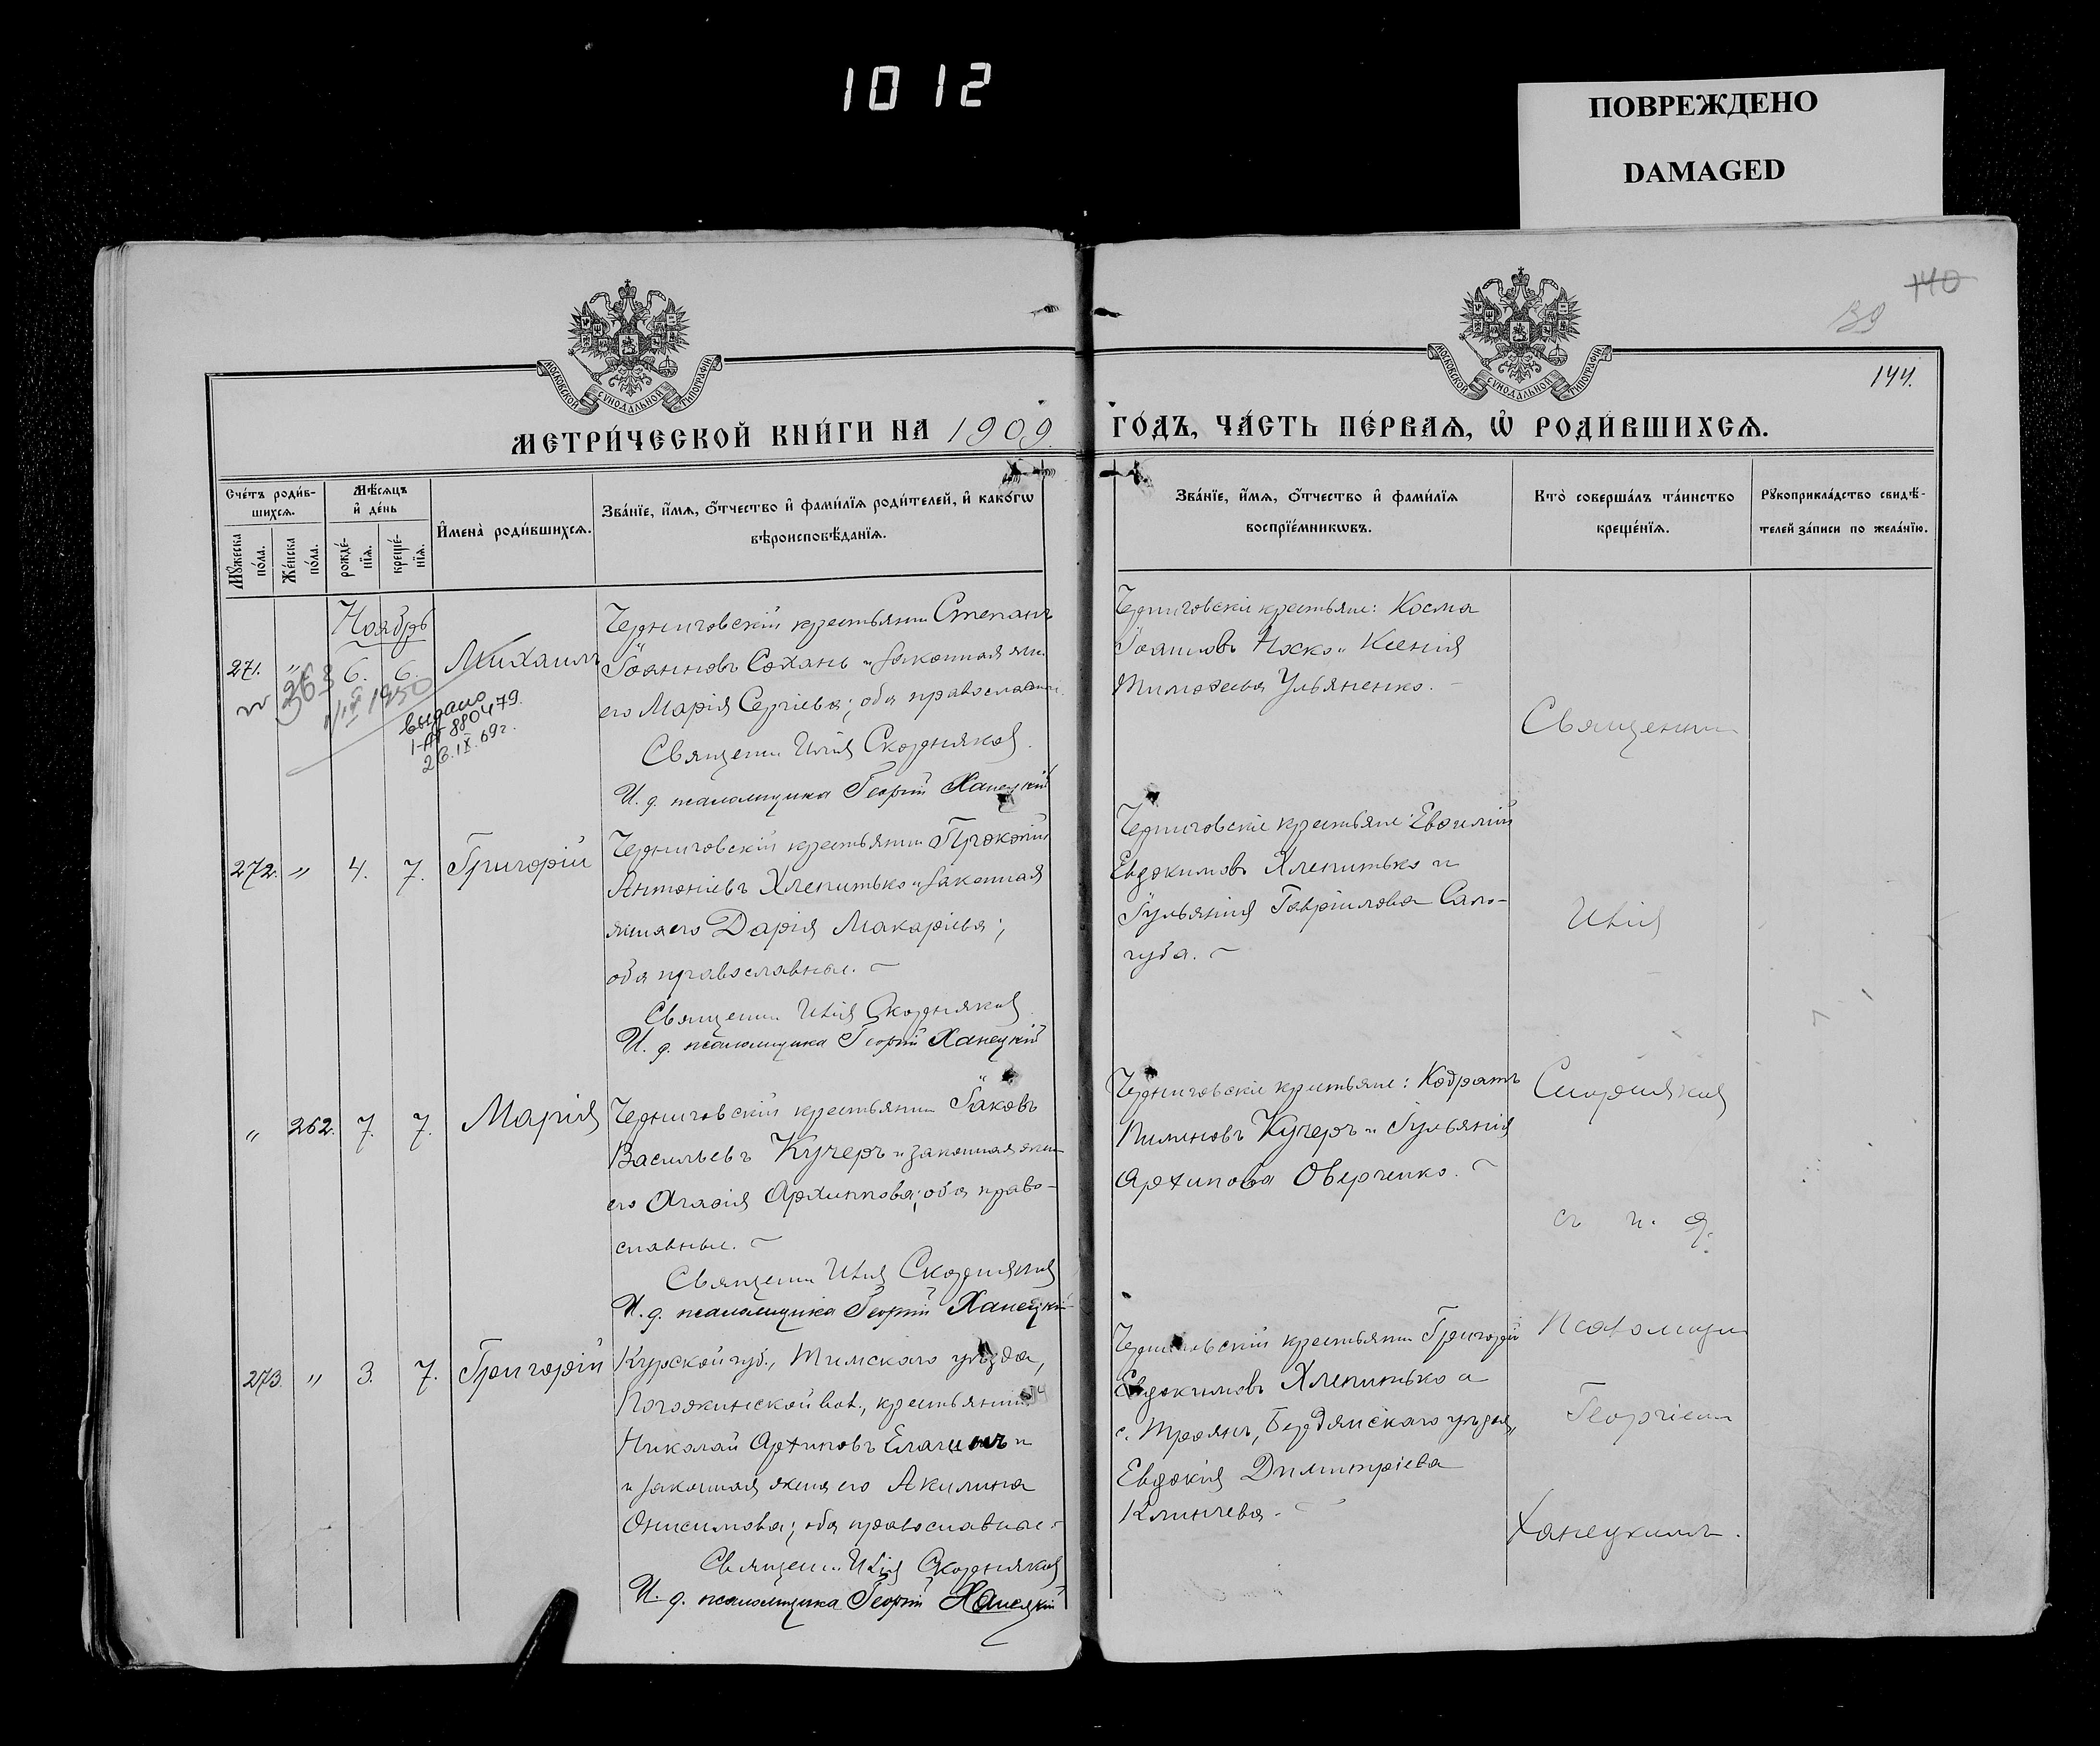 1012
ПОВРЕЖДЕНО
DAMAGED
140
139
144.
МОСКОВСКОЙ СУНОДАЛЬНОЙ ТИПОГРАФІИ
МОСКОВСКОЙ СУНОДАЛЬНОЙ ТИПОГРАФІИ
МЕТРИ́ЧЕСКОЙ КНИ́ГИ НА 1909 ГО́ДЪ, ЧА́СТЬ ПЕ́РВАѦ, Ѽ РОДИ́ВШИХСѦ.
Сче́тъ роди́в-
шихсѧ.
Мꙋ́жеска
по́ла.
Же́нска
по́ла.
Мѣ́сѧцъ
и҆ де́нь
рожде́-
нїѧ.
креще́-
нїѧ.
И҆мена̀ роди́вшихсѧ.
Зва́нїе, и҆́мѧ, ѻ҆́тчество и҆ фами́лїѧ роди́телей, и҆ како́гѡ
вѣроисповѣ́данїѧ.
Зва́нїе, и҆́мѧ, ѻ҆́тчество и҆ фами́лїѧ
воспрїе́мникѡвъ.
Кто̀ соверша́лъ та́инство
креще́нїѧ.
Рꙋкоприкла́дство свидѣ́-
телей за́писи по жела́нїю.
Ноябрь
271. " 6. 6. Михаилъ
368
1950
выдано
880479.
26.IX.69г.
Черниговскій крестьянин Степанъ
Іоанновъ Сохань и законная жена
его Марія Сергіева; оба православные.
Священник Илія Скорняковъ
И. д. псаломщика Георгій Ханецкій
Черниговскіе крестьяне: Косма
Іоанновъ Носко и Ксенія
Тимофеева Ульяненко.
272. " 4. 7. Григорій
Черниговскій крестьянин Прокопій
Антоніевъ Хлепитько и законная
жена его Дарія Макаріева;
оба православные.
Священник Илія Скорняковъ
И. д. псаломщика Георгій Ханецкій
Черниговскіе крестьяне:
Евдокимовъ Хлепитько и
Іульянія Гавриилова Сало-
губа.
" 262. 7. 7. Марія
Черниговскій крестьянин Іаковъ
Васильевъ Кучеръ и законная жена
его Агафія Архиппова; оба право-
славные.
Священник Илія Скорняковъ
И. д. псаломщика Георгій Ханецкій
Черниговскіе крестьяне: Кодратъ
Пименовъ Кучеръ и Іульянія
Архипова Оверченко.
273. " 3. 7. Григорій
Курской губ., Тимскаго уѣзда,
Погожинской вол., крестьянин
Николай Архиповъ
и законная жена его Акилина
Онисимова; оба православные.
Священник Илія Скорняковъ
И. д. псаломщика Георгій Ханецкій
Черниговскій крестьянин Григорій
Евдокимовъ Хлепитько и
с. Троянъ, Бердянскаго уѣзда,
Евдокія Димитріева
Клинчева.
Священник
Илія
Скорняковъ
съ и. д.
Псаломщи
Георгіем
Ханецкимъ.